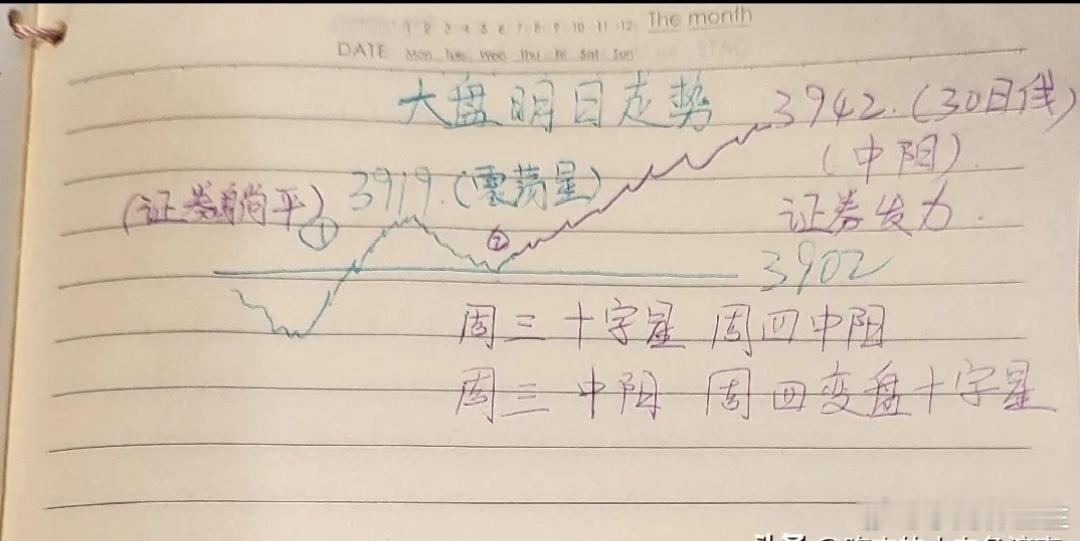 1 2 3 4 5 6 7 8 9 10 11 12 The month
DATE Mon Tue Wed Thu Fri Sat Sun
大盘明日走势
3942.(30日线)
(中阳).
(证券躺平)
3919.(十字星)
证券发力.
①
②
3902
周三十字星 周四中阳
周三 中阳 周四变盘十字星